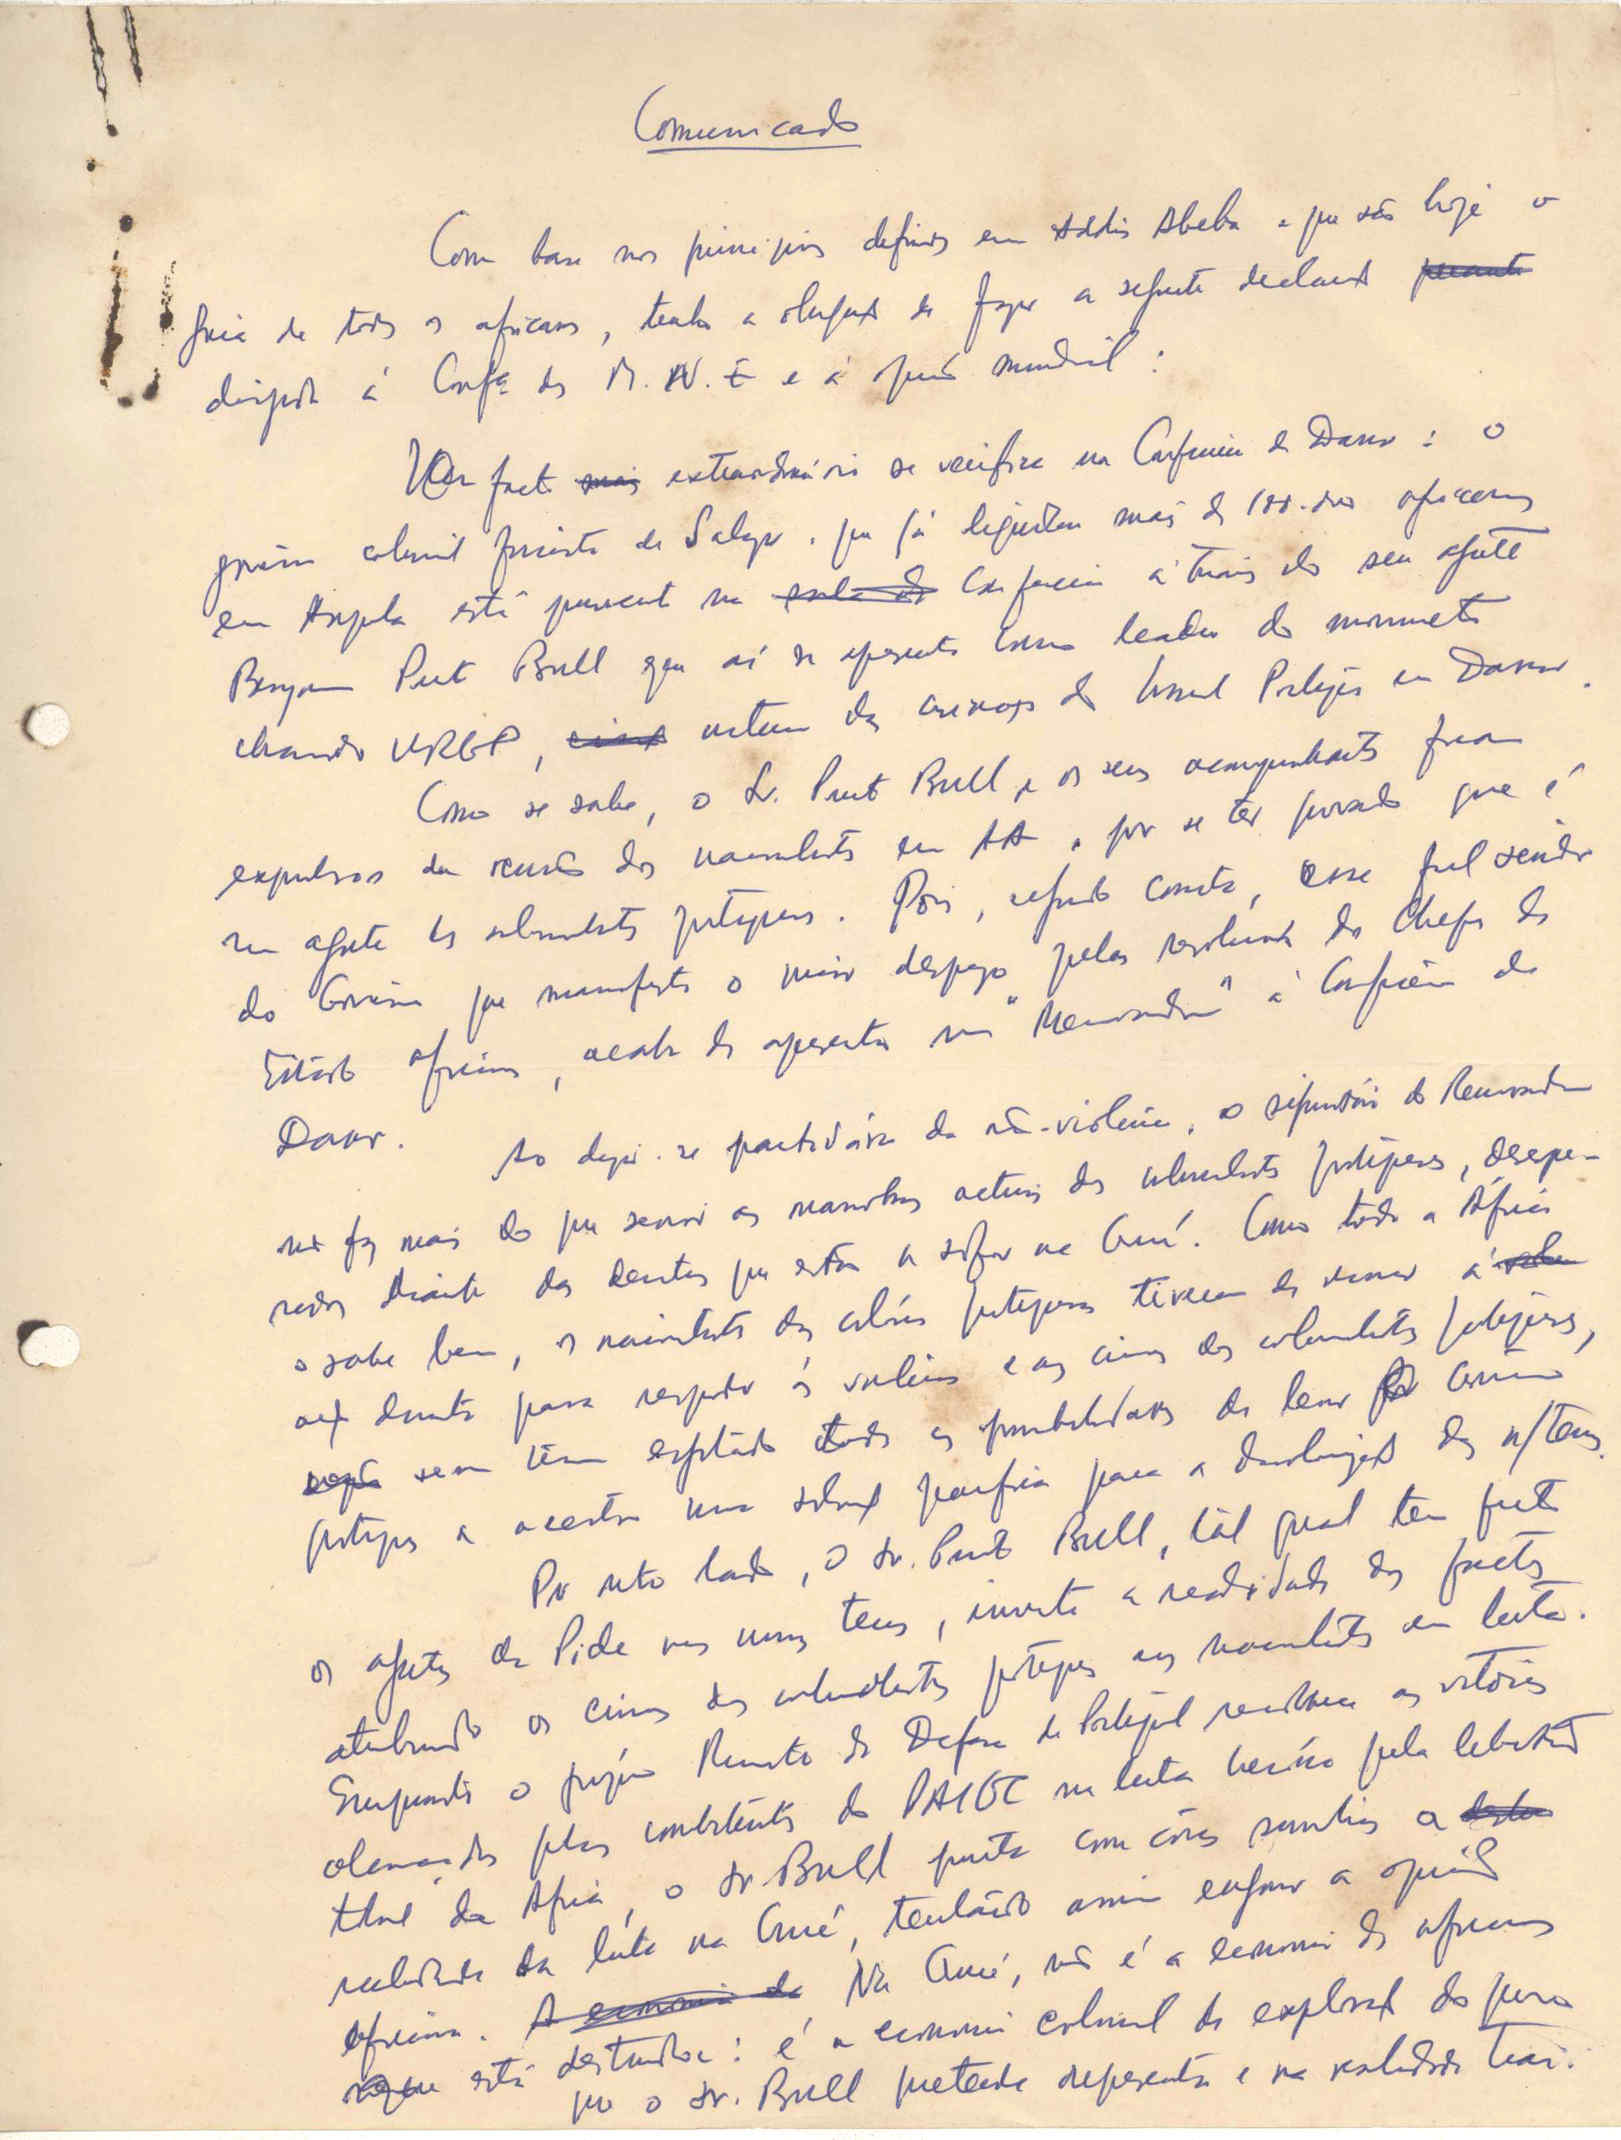 Comunicado
Com base nos principios definidos em Addis Abeba e que são hoje o
guia de todos os africanos, tenho a obrigação de fazer a seguinte declaração perante
dirigida à Confª dos M.N.E e à opinião mundial:
Um facto mais extraordinário se verifica na Conferência de Dakar: o
governo colonial fascista de Salazar, que já liquidou mais de 100.000 africanos
em Angola está presente na sala da Conferência através do seu agente
Benjamin Pinto Bull que aí se apresenta como leader do movimento
chamado URGP, nascem das do Consul Português em Dakar.
Como se sabe, o Sr. Pinto Bull e os seus acompanhantes foram
expulsos da reunião dos nacionalistas em AA, por se ter provado que é
um agente dos colonialistas portugueses. Pois, segundo consta, esse fiel servidor
do Governo que manifesta o maior desprezo pelas resoluções dos Chefes de
Estado africanos, acaba de apresentar um "Memorandum" à Conferência de
Dakar.
Ao dizer-se partidário da não-violência, o signatário do Memorandum
não faz mais do que servir as manobras actuais dos colonialistas portugueses, desespe-
rados diante das derrotas que estão a sofrer na Guiné. Como toda a África
o sabe bem, os nacionalistas das colónias portuguesas tiveram de recorrer à
acção directa para responder à violência e aos crimes dos colonialistas portugueses,
sem terem esgotado todas as possibilidades de levar o Governo
português a aceitar uma solução pacífica para a descolonização das n/terras.
Por outro lado, o Sr. Pinto Bull, tal qual tem feito
os agentes da Pide nas nossas terras, inverte a realidade dos factos
atribuindo os crimes dos colonialistas portugueses aos nacionalistas em luta.
Enquanto o próprio Ministro da Defesa de Portugal reconhece as vitórias
alcançadas pelos combatentes do PAIGC na luta heróica pela libertação
total da África, o Sr. Bull pinta com côres sombrias a
realidade da luta na Guiné, tentando assim enganar a opinião
africana. A economia da Na Guiné, não é a economia dos africanos
que está destruída: é a economia colonial de exploração do povo
que o Sr. Bull pretende representar e na realidade trai.